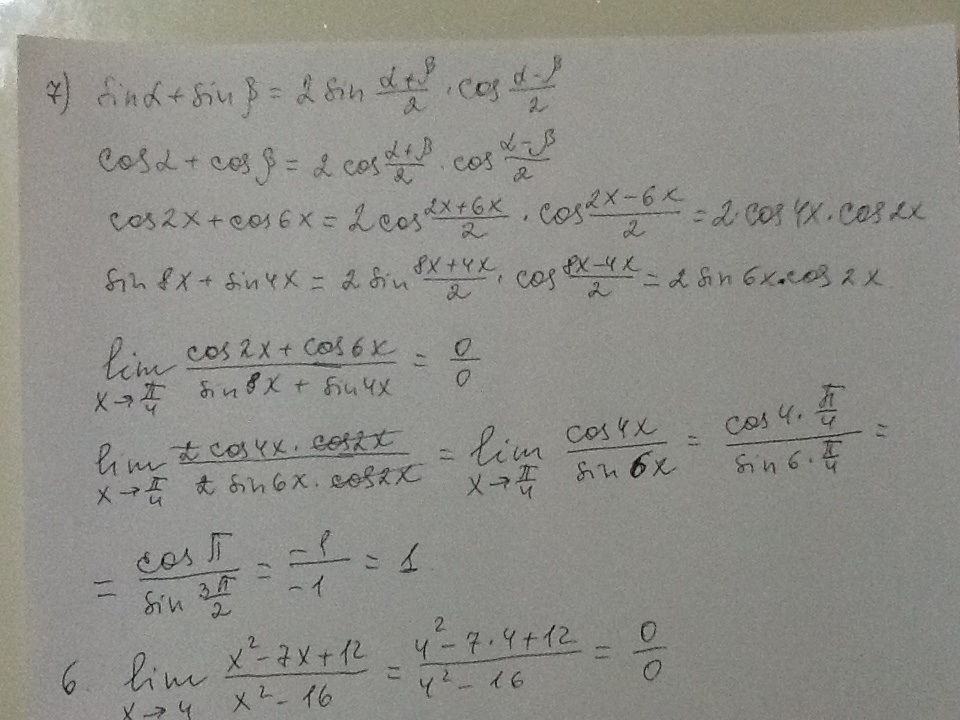 7) sinα + sinβ = 2 sin (α+β)/2 · cos (α-β)/2
cosα + cosβ = 2 cos (α+β)/2 · cos (α-β)/2
cos2x + cos6x = 2 cos (2x+6x)/2 · cos (2x-6x)/2 = 2 cos4x · cos2x
sin8x + sin4x = 2 sin (8x+4x)/2 · cos (8x-4x)/2 = 2 sin6x · cos2x
lim x→π/4 (cos2x + cos6x)/(sin8x + sin4x) = 0/0
lim x→π/4 (2 cos4x · cos2x)/(2 sin6x · cos2x) = lim x→π/4 cos4x/sin6x = (cos4·π/4)/(sin6·π/4) =
= cosπ/(sin 3π/2) = -1/-1 = 1
6. lim x→4 (x²-7x+12)/(x²-16) = (4²-7·4+12)/(4²-16) = 0/0